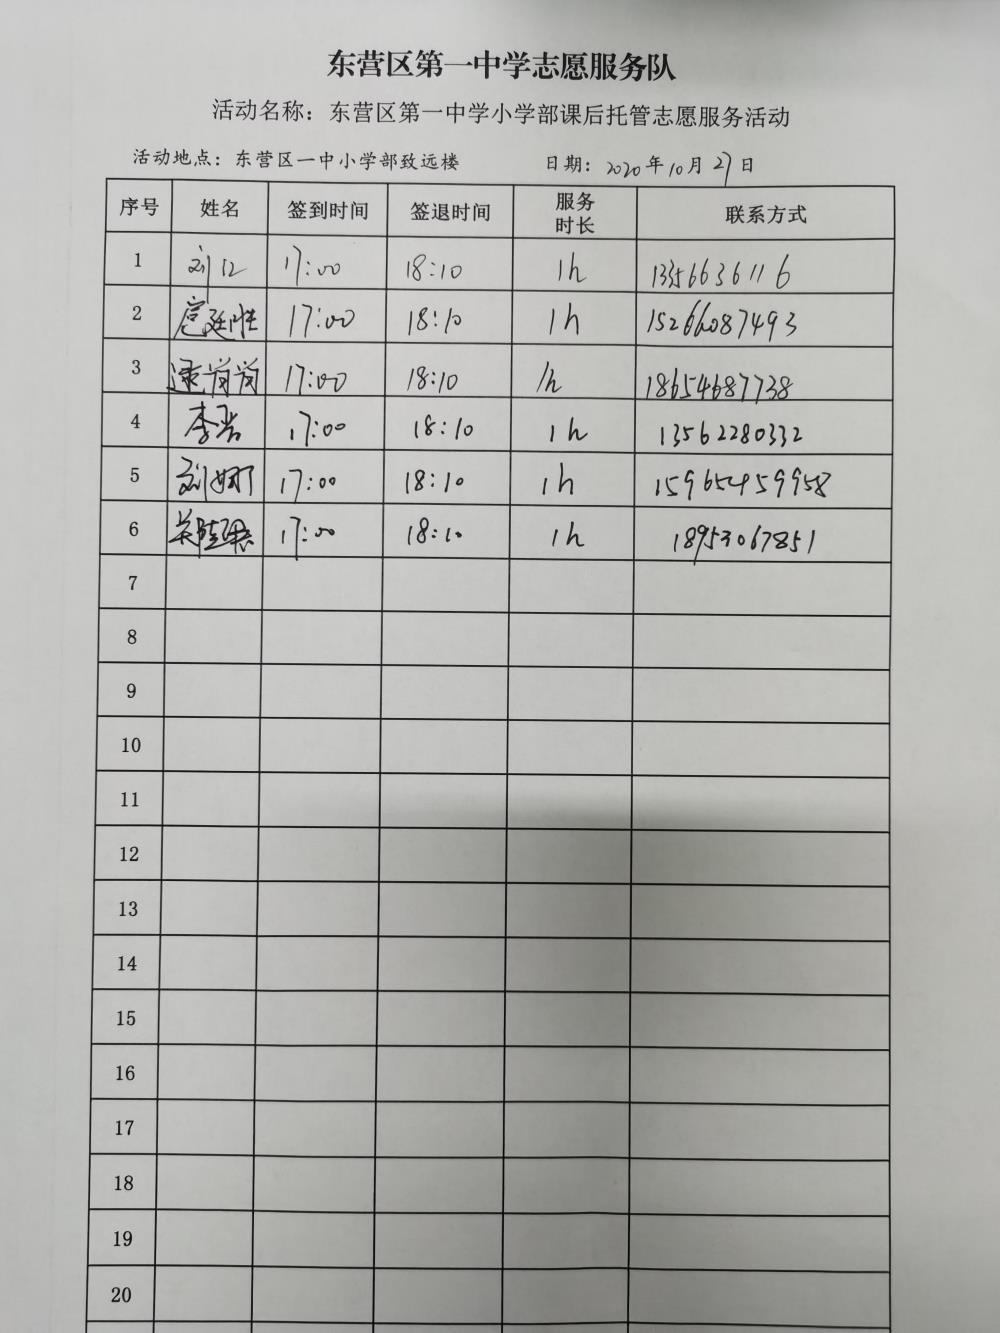 东营区第一中学志愿服务队
活动名称：东营区第一中学小学部课后托管志愿服务活动
活动地点：东营区一中小学部致远楼 日期：2020年10月27日
序号 姓名 签到时间 签退时间 服务时长 联系方式
1 刘江 17:00 18:10 1h 13356636116
2 17:00 18:10 1h 15266087493
3 逯岗岗 17:00 18:10 1h 18654687738
4 李岩 17:00 18:10 1h 13562280332
5 刘娜 17:00 18:10 1h 15965459958
6 17:00 18:10 1h 18953067851
7
8
9
10
11
12
13
14
15
16
17
18
19
20